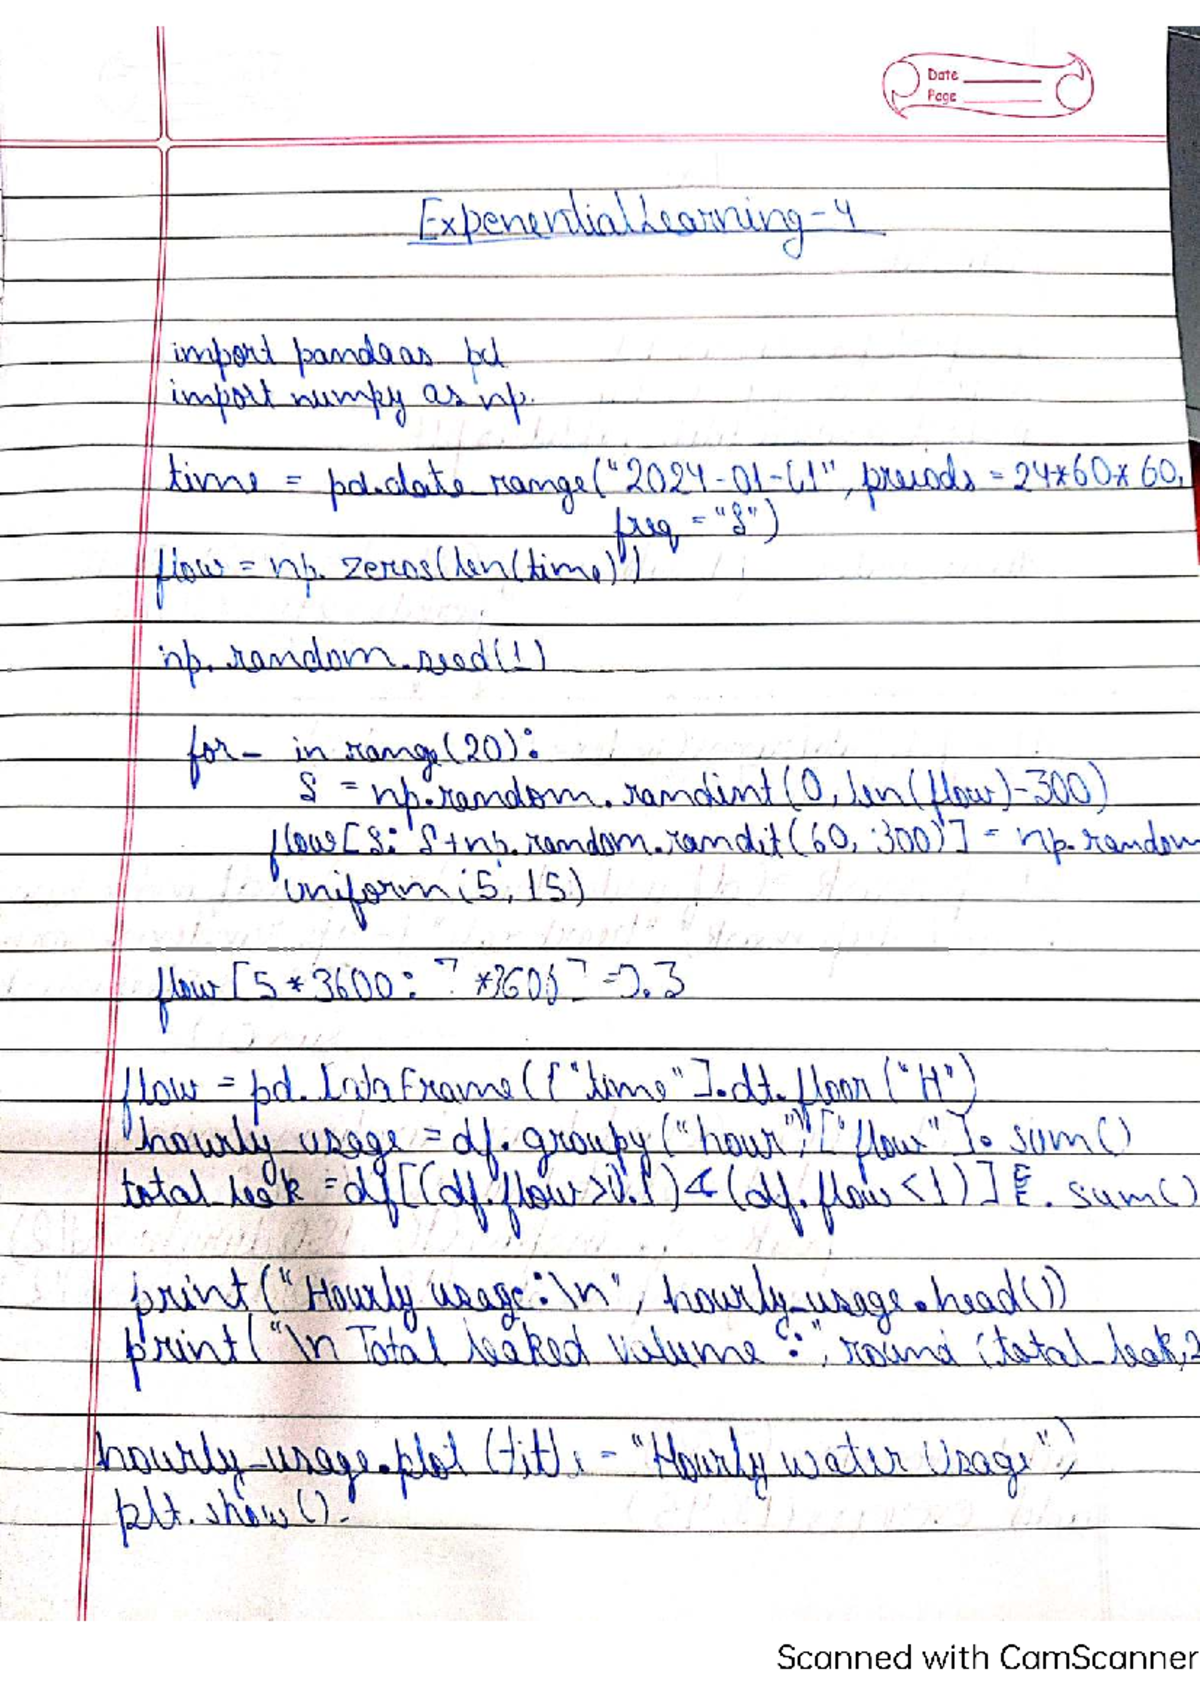 Date
Page
Expenential Learning - 4
import pandaas pd
import numpy as np.
time = pd.date_range("2024-01-01", preiods = 24*60*60,
freq = "S")
flow = np.zeros(len(time))
np.random.seed(1)
for _ in range(20):
S = np.random.randint(0, len(flow)-300)
flow[S: S+np.random.randit(60, 300)] = np.random
uniform(5, 15)
flow [5*3600: 7*3600] = 0.3
flow = pd.DataFrame(["time"].dt.floor("H")
hourly usage = df.groupy("hour")["flow"].sum()
total_leak = df[(df.flow>0.1) & (df.flow<1)] . sum()
print("Hourly usage:\n", hourly_usage.head())
print("\n Total leaked volume:", round(total_leak,2
hourly_usage.plot (title = "Hourly water Usage")
plt.show().
Scanned with CamScanner